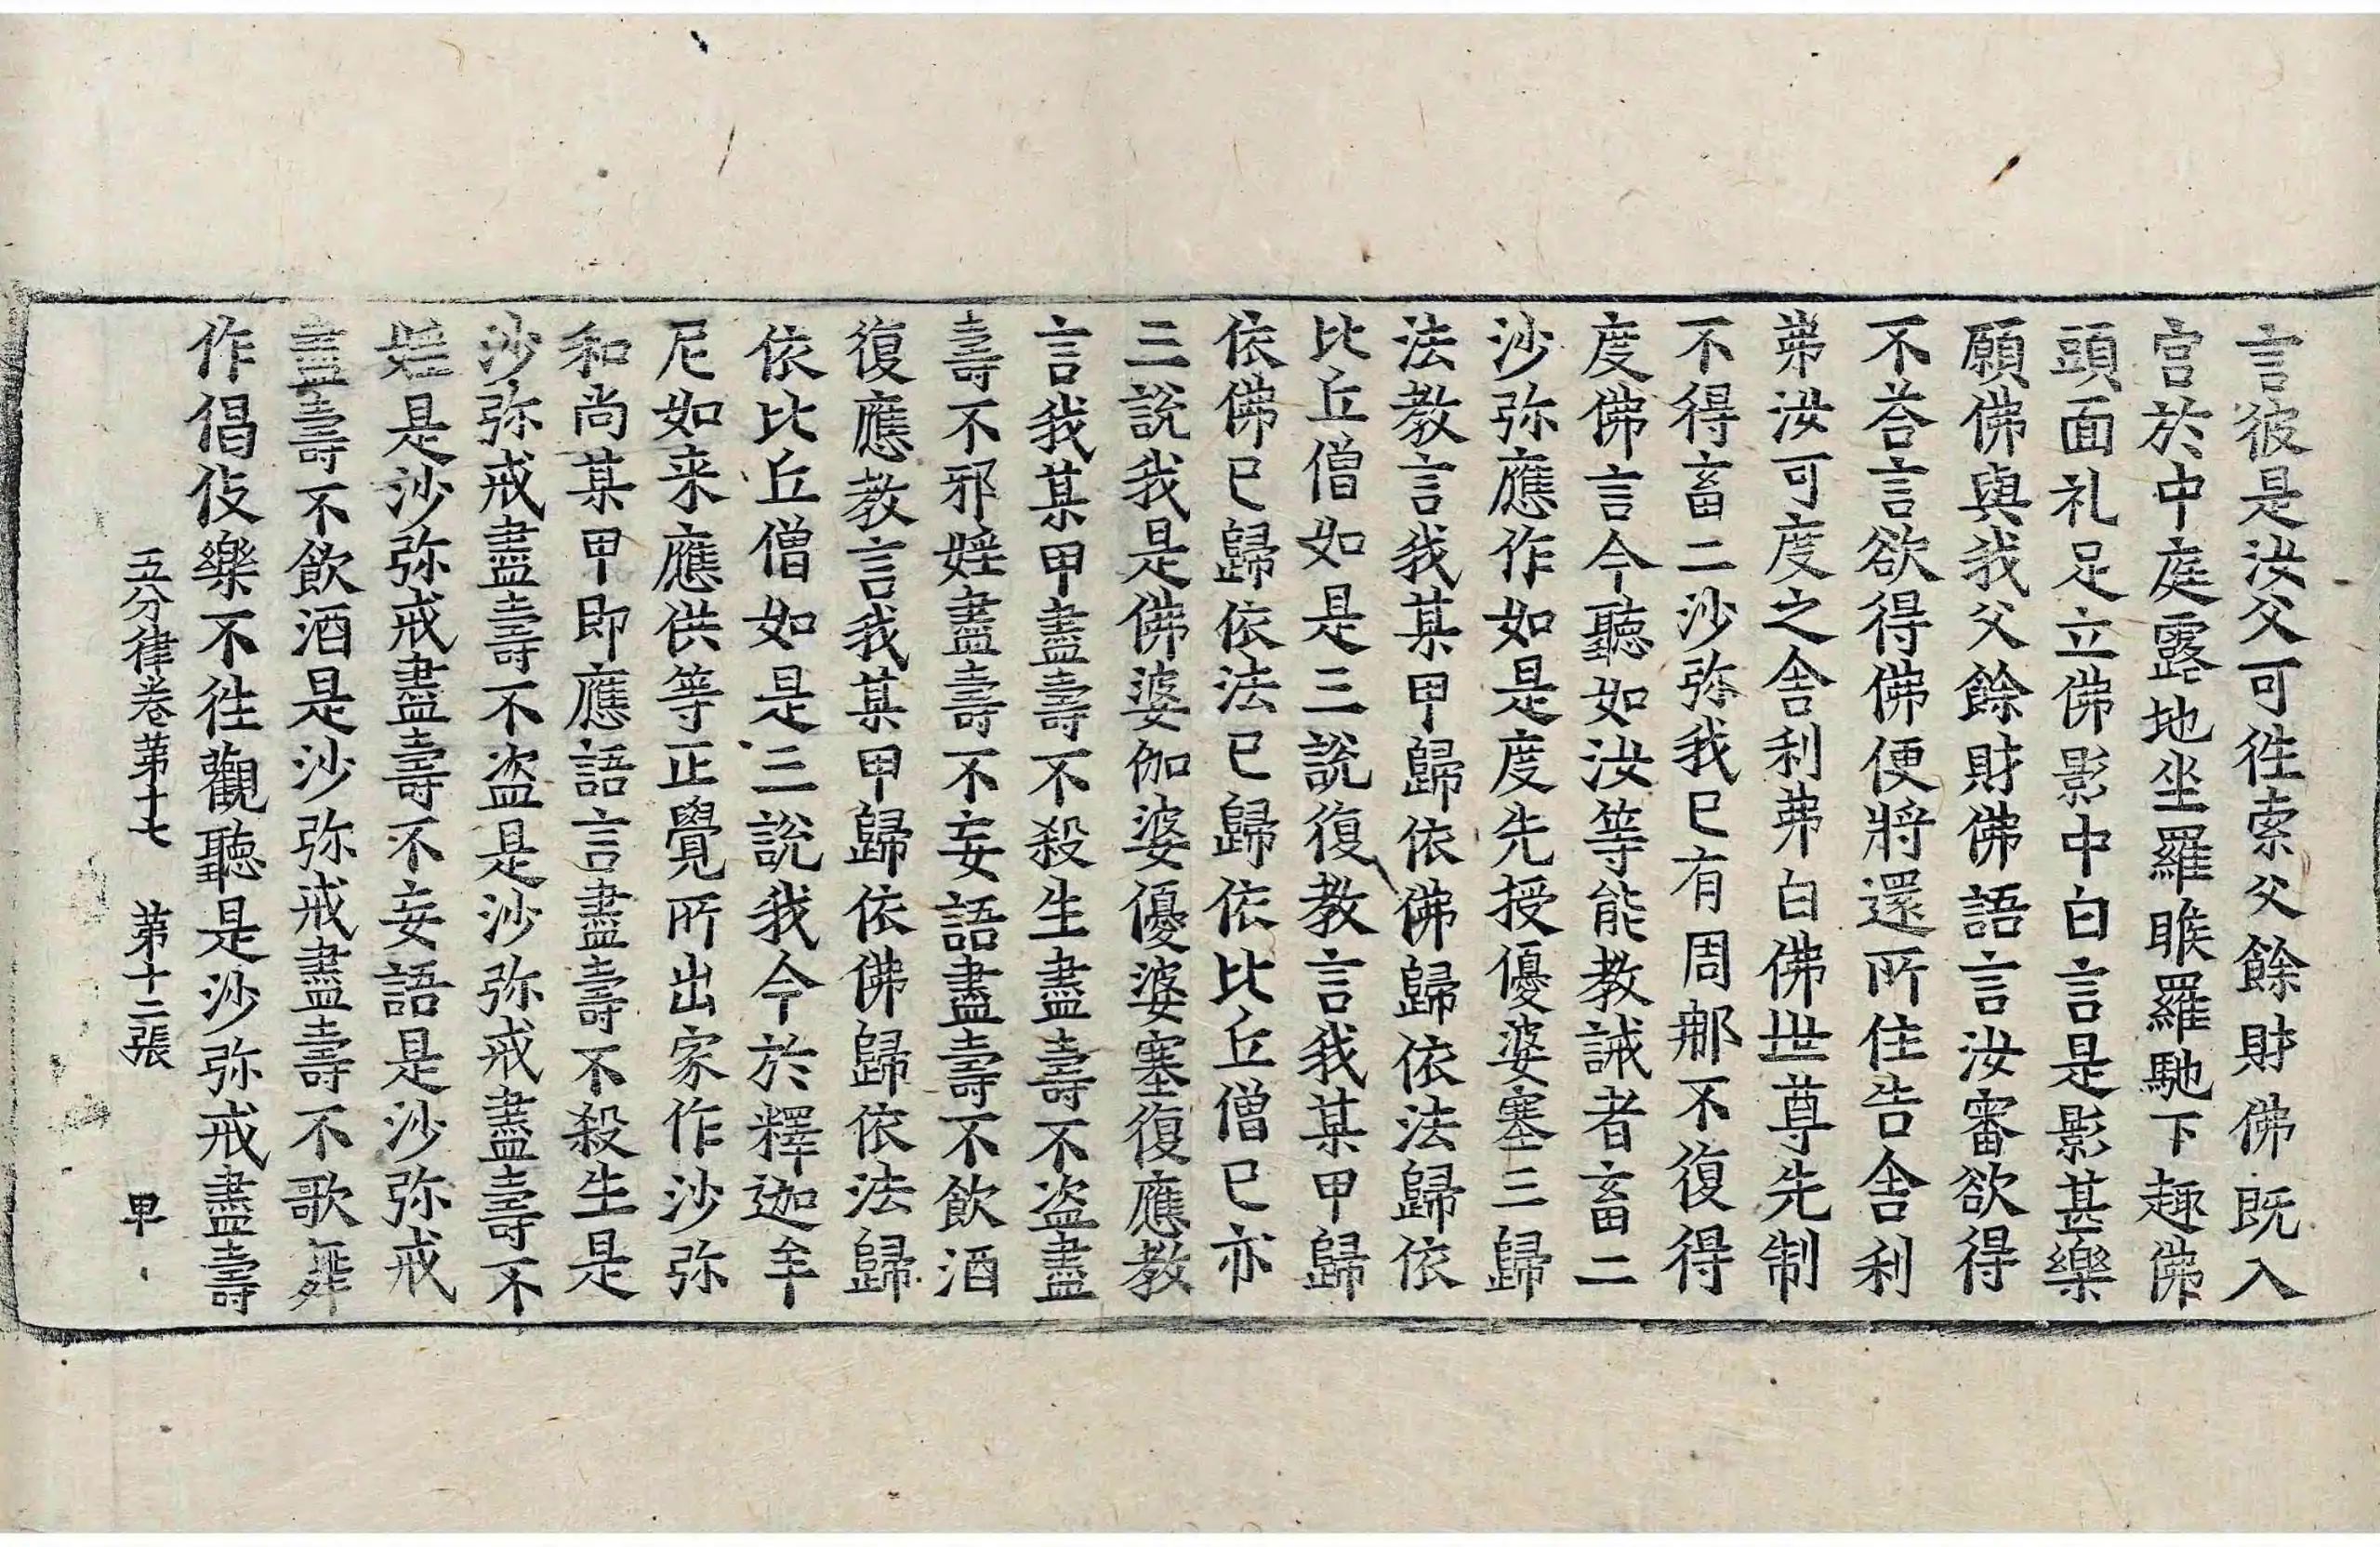 言彼是汝父可徃索父餘財佛既入
宫於中庭露地坐羅睺羅馳下趣佛
頭面礼足立佛影中白言是影甚樂
願佛與我父餘財佛語言汝審欲得
不荅言欲得佛便將還所住告舎利
弗汝可度之舎利弗白佛世尊先制
不得畜二沙弥我已有周那不復得
度佛言今聽如汝等能教誡者畜二
沙弥應作如是度先授優婆塞三歸
法教言我某甲歸依佛歸依法歸依
比丘僧如是三說復教言我某甲歸
依佛已歸依法已歸依比丘僧已亦
三說我是佛婆伽婆優婆塞復應教
言我某甲盡壽不殺生盡壽不盗盡
壽不邪婬盡壽不妄語盡壽不飲酒
復應教言我某甲歸依佛歸依法歸
依比丘僧如是三說我今於釋迦牟
尼如来應供等正覺所出家作沙弥
和尚某甲即應語言盡壽不殺生是
沙弥戒盡壽不盗是沙弥戒盡壽不
婬是沙弥戒盡壽不妄語是沙弥戒
盡壽不飲酒是沙弥戒盡壽不歌舞
作倡伎樂不徃觀聽是沙弥戒盡壽
五分律卷苐十七　苐十二張　甲